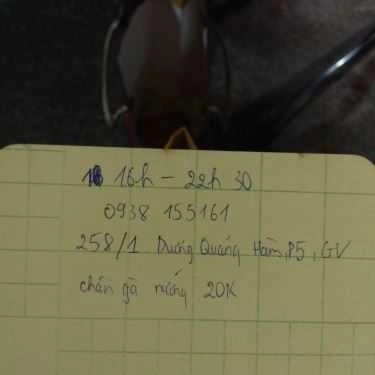 16h - 22h 30
0938 155161
258/1 Dương Quảng Hàm, P5, GV
chân gà nướng 20K